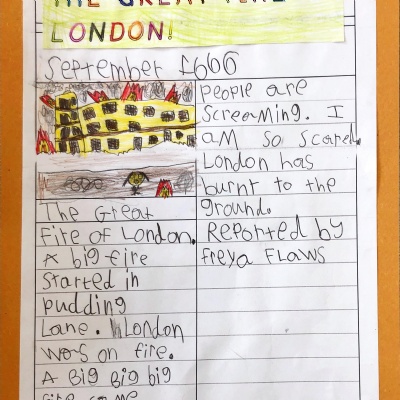 THE GREAT FIRE
LONDON!
September 1666
The Great
Fire of London.
A big fire
Started in
pudding
Lane. London
was on fire.
A Big Big big
fire came
People are
Screaming. I
am so scared.
London has
burnt to the
ground.
Reported by
freya FLaws